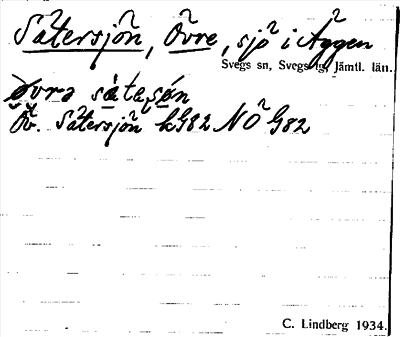 Sätersjön, Övre, sjö i Äggen
Svegs sn, Svegs tg, Jämtl. län.
øvrə sätəʂøn
Öv. Sätersjön kG82 NÖ G82
C. Lindberg 1934.